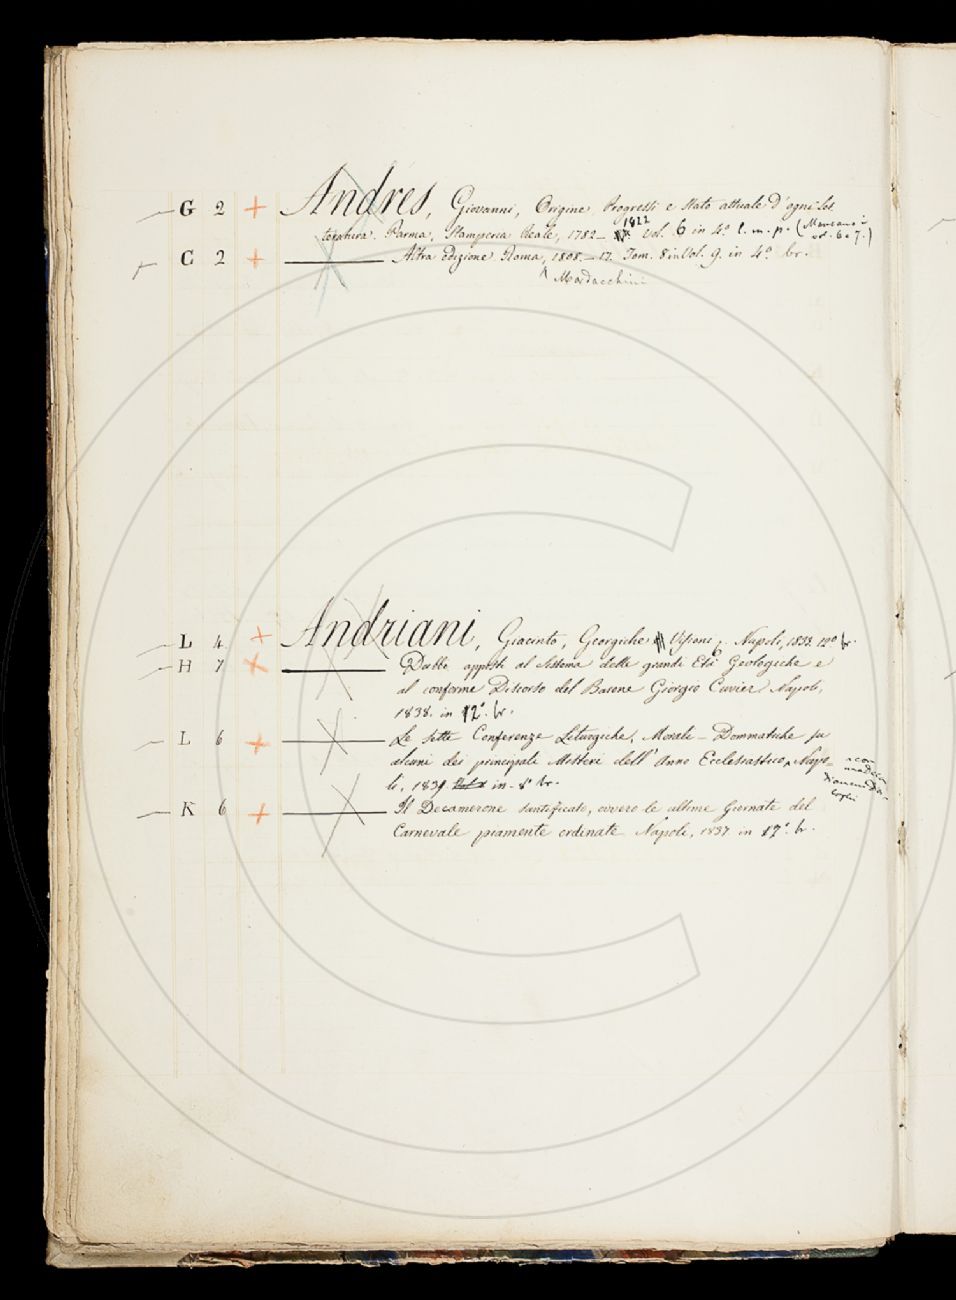 G 2 + Andres, Giovanni, Origine Progressi e Stato attuale d'ogni Let
teratura. Parma, Stamperia Reale, 1782- 1822 Vol. 6 in 4º l. m. p. (Mancano i
vol. 6 e 7.)
C 2 + Altra Edizione Roma, 1808-17. Tom. 8 in Vol. 9. in 4º br.
Mordacchini
L 4 + Andriani, Giacinto, Georgiche Visioni Napoli, 1833. 12º br.
H 7 + Dubbi apposti al Sistema delle grandi Età Geologiche e
al conforme Discorso del Barone Giorgio Cuvier Napoli,
1838. in 12º. br.
L 6 + Le Sette Conferenze Liturgiche, Morali-Dommatiche su
alcuni dei principali Misteri dell'Anno Ecclesiastico, Napo-
li, 1839 in-8º br.
K 6 + Il Decamerone Santificato, ovvero le ultime Giornate del
Carnevale piamente ordinate Napoli, 1837 in 12º. br.